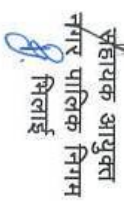 सहायक आयुक्त
नगर पालिक निगम
भिलाई